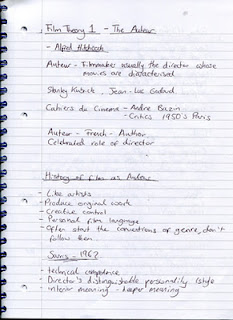 Film Theory 1 - The Auteur
- Alfred Hitchcock
Auteur - Filmmaker usually the director whose
movies are characterised
Stanley Kubrick, Jean-Luc Godard
Cahiers du Cinema - Andre Bazin
- Critics 1950's Paris
Auteur - French - Author
Celebrated role of director
History of film as Auteur
- Like artists
- Produce original work
- Creative control
- Personal film language
- Often start the conventions of genre, don't
follow them
Sarris - 1962
- technical competence
- Director's distinguishable personality/style
- interior meaning - deeper meaning